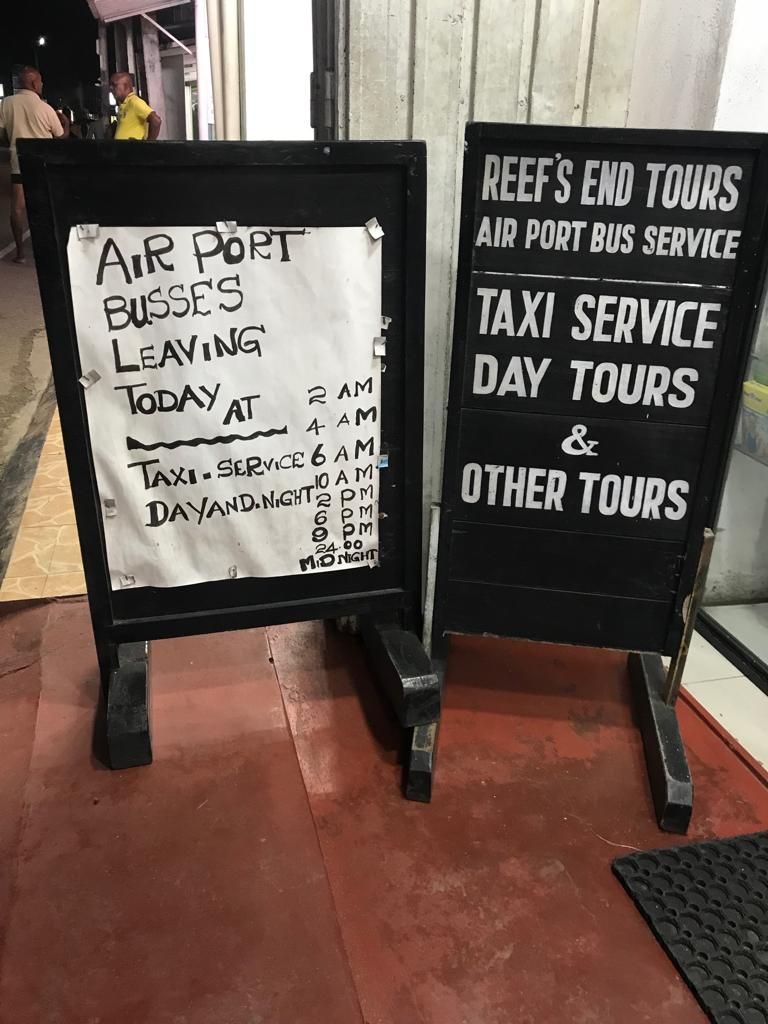 AIR PORT
BUSSES
LEAVING
TODAY AT
2 AM
4 AM
TAXI. SERVICE 6 AM
DAY AND. NIGHT 10 AM
2 PM
6 PM
9 PM
24.00
MIDNIGHT
REEF'S END TOURS
AIR PORT BUS SERVICE
TAXI SERVICE
DAY TOURS
&
OTHER TOURS